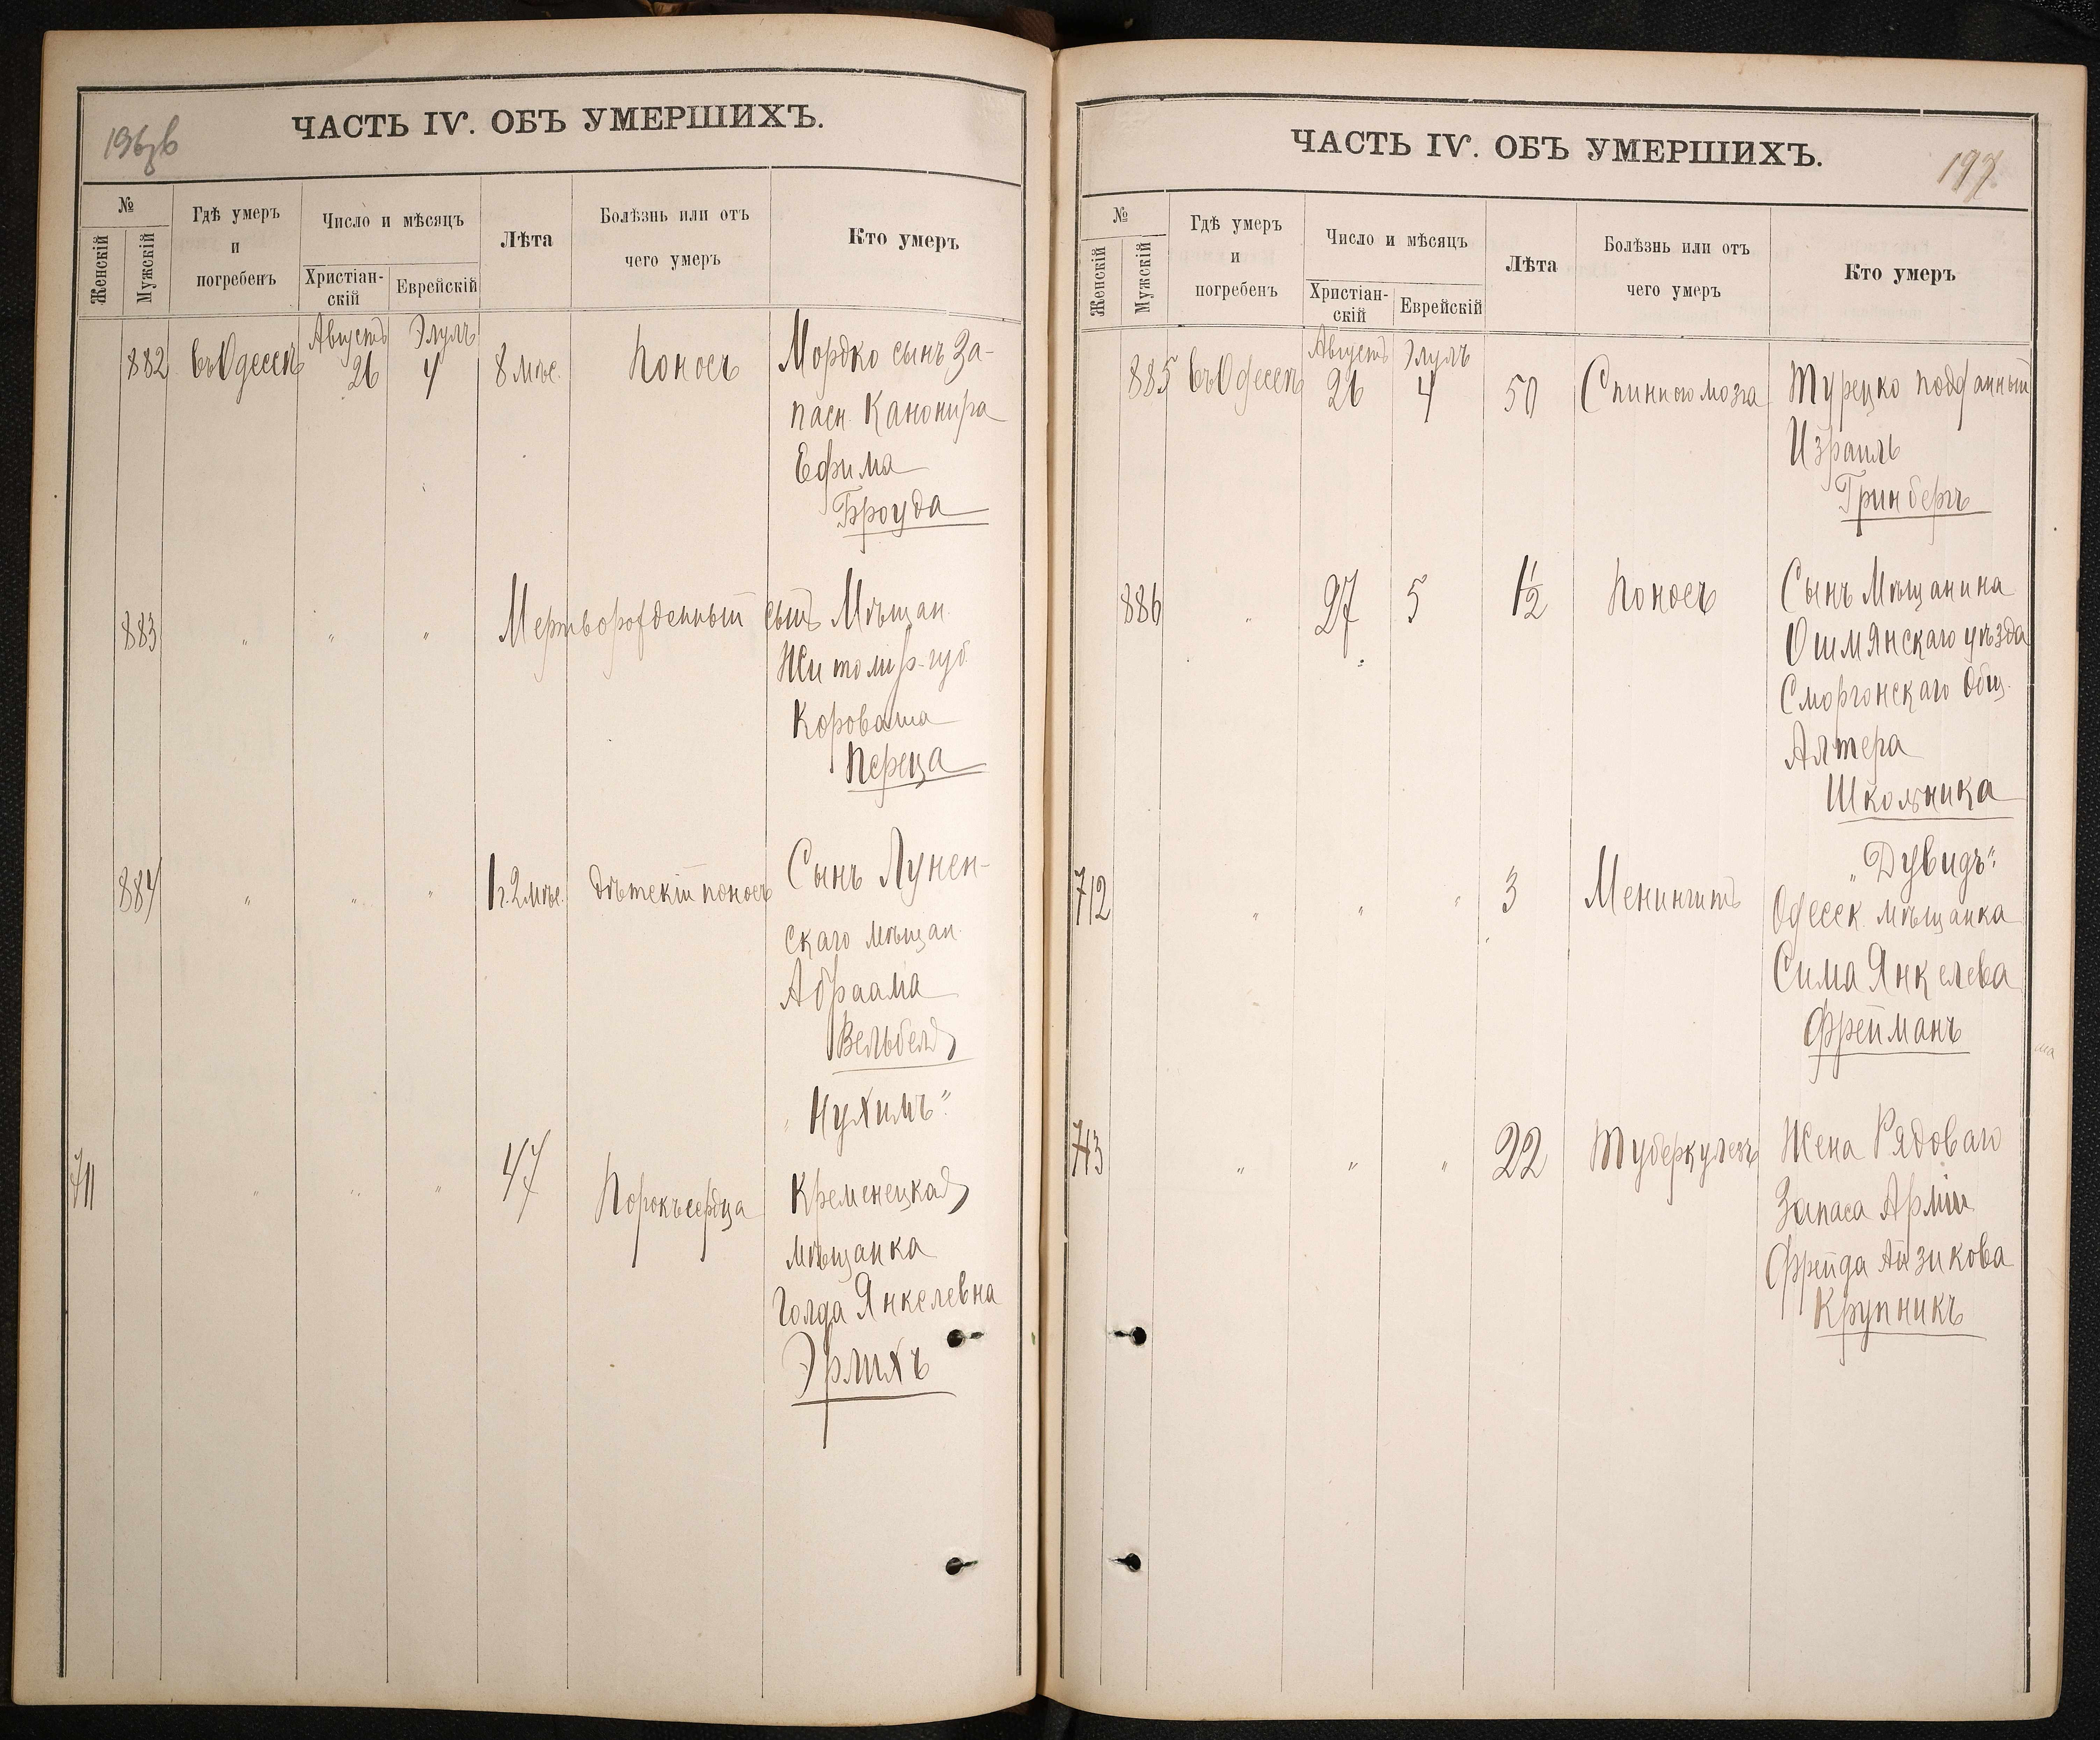 196об
ЧАСТЬ IV. ОБЪ УМЕРШИХЪ.
№
Женскій
Мужскій
Гдѣ умеръ
и
погребенъ
Число и мѣсяцъ
Христіан-
скій
Еврейскій
Лѣта
Болѣзнь или отъ
чего умеръ
Кто умеръ
882 въ Одессѣ Августъ 26 Элулъ 4 8 мѣс. Поносъ Мордко сынъ За-
пасн. Канонира
Ефима
Броуда
883 " " " Мертворожденный сынъ Мѣщан.
Житомир. губ.
Переца
884 " " " 1 г. 2 мѣс. Дѣтскій поносъ Сынъ Лунен-
скаго мѣщан.
Абраама
"Нухимъ"
711 " " " 47 Порокъ сердца Кременецкая
мѣщанка
Голда Янкелевна
Эрлихъ
ЧАСТЬ IV. ОБЪ УМЕРШИХЪ.
197
№
Женскій
Мужскій
Гдѣ умеръ
и
погребенъ
Число и мѣсяцъ
Христіан-
скій
Еврейскій
Лѣта
Болѣзнь или отъ
чего умеръ
Кто умеръ
885 въ Одессѣ Августъ 26 Элулъ 4 50 Спинного мозга Турецко подданный
Израиль
Гринбергъ
886 " 27 5 1½ Поносъ Сынъ Мѣщанина
Ошмянскаго уѣзда
Сморгонскаго Общ.
Алтера
Школьника
"Дувидъ"
712 " " " 3 Менингитъ Одесск. мѣщанка
Сима Янкелева
Фрейманъ
713 " " " 22 Туберкулезъ Жена Рядоваго
Запаса Арміи
Фрейда Айзикова
Крупникъ